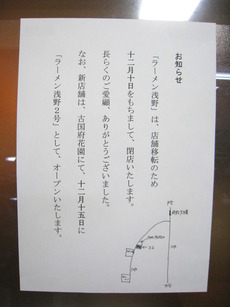 お知らせ
「ラーメン浅野」は、店舗移転のため
十二月十日をもちまして、閉店いたします。
長らくのご愛顧、ありがとうございました。
なお、新店舗は、古国府花園にて、十二月十五日に
『ラーメン浅野2号』として、オープンいたします。